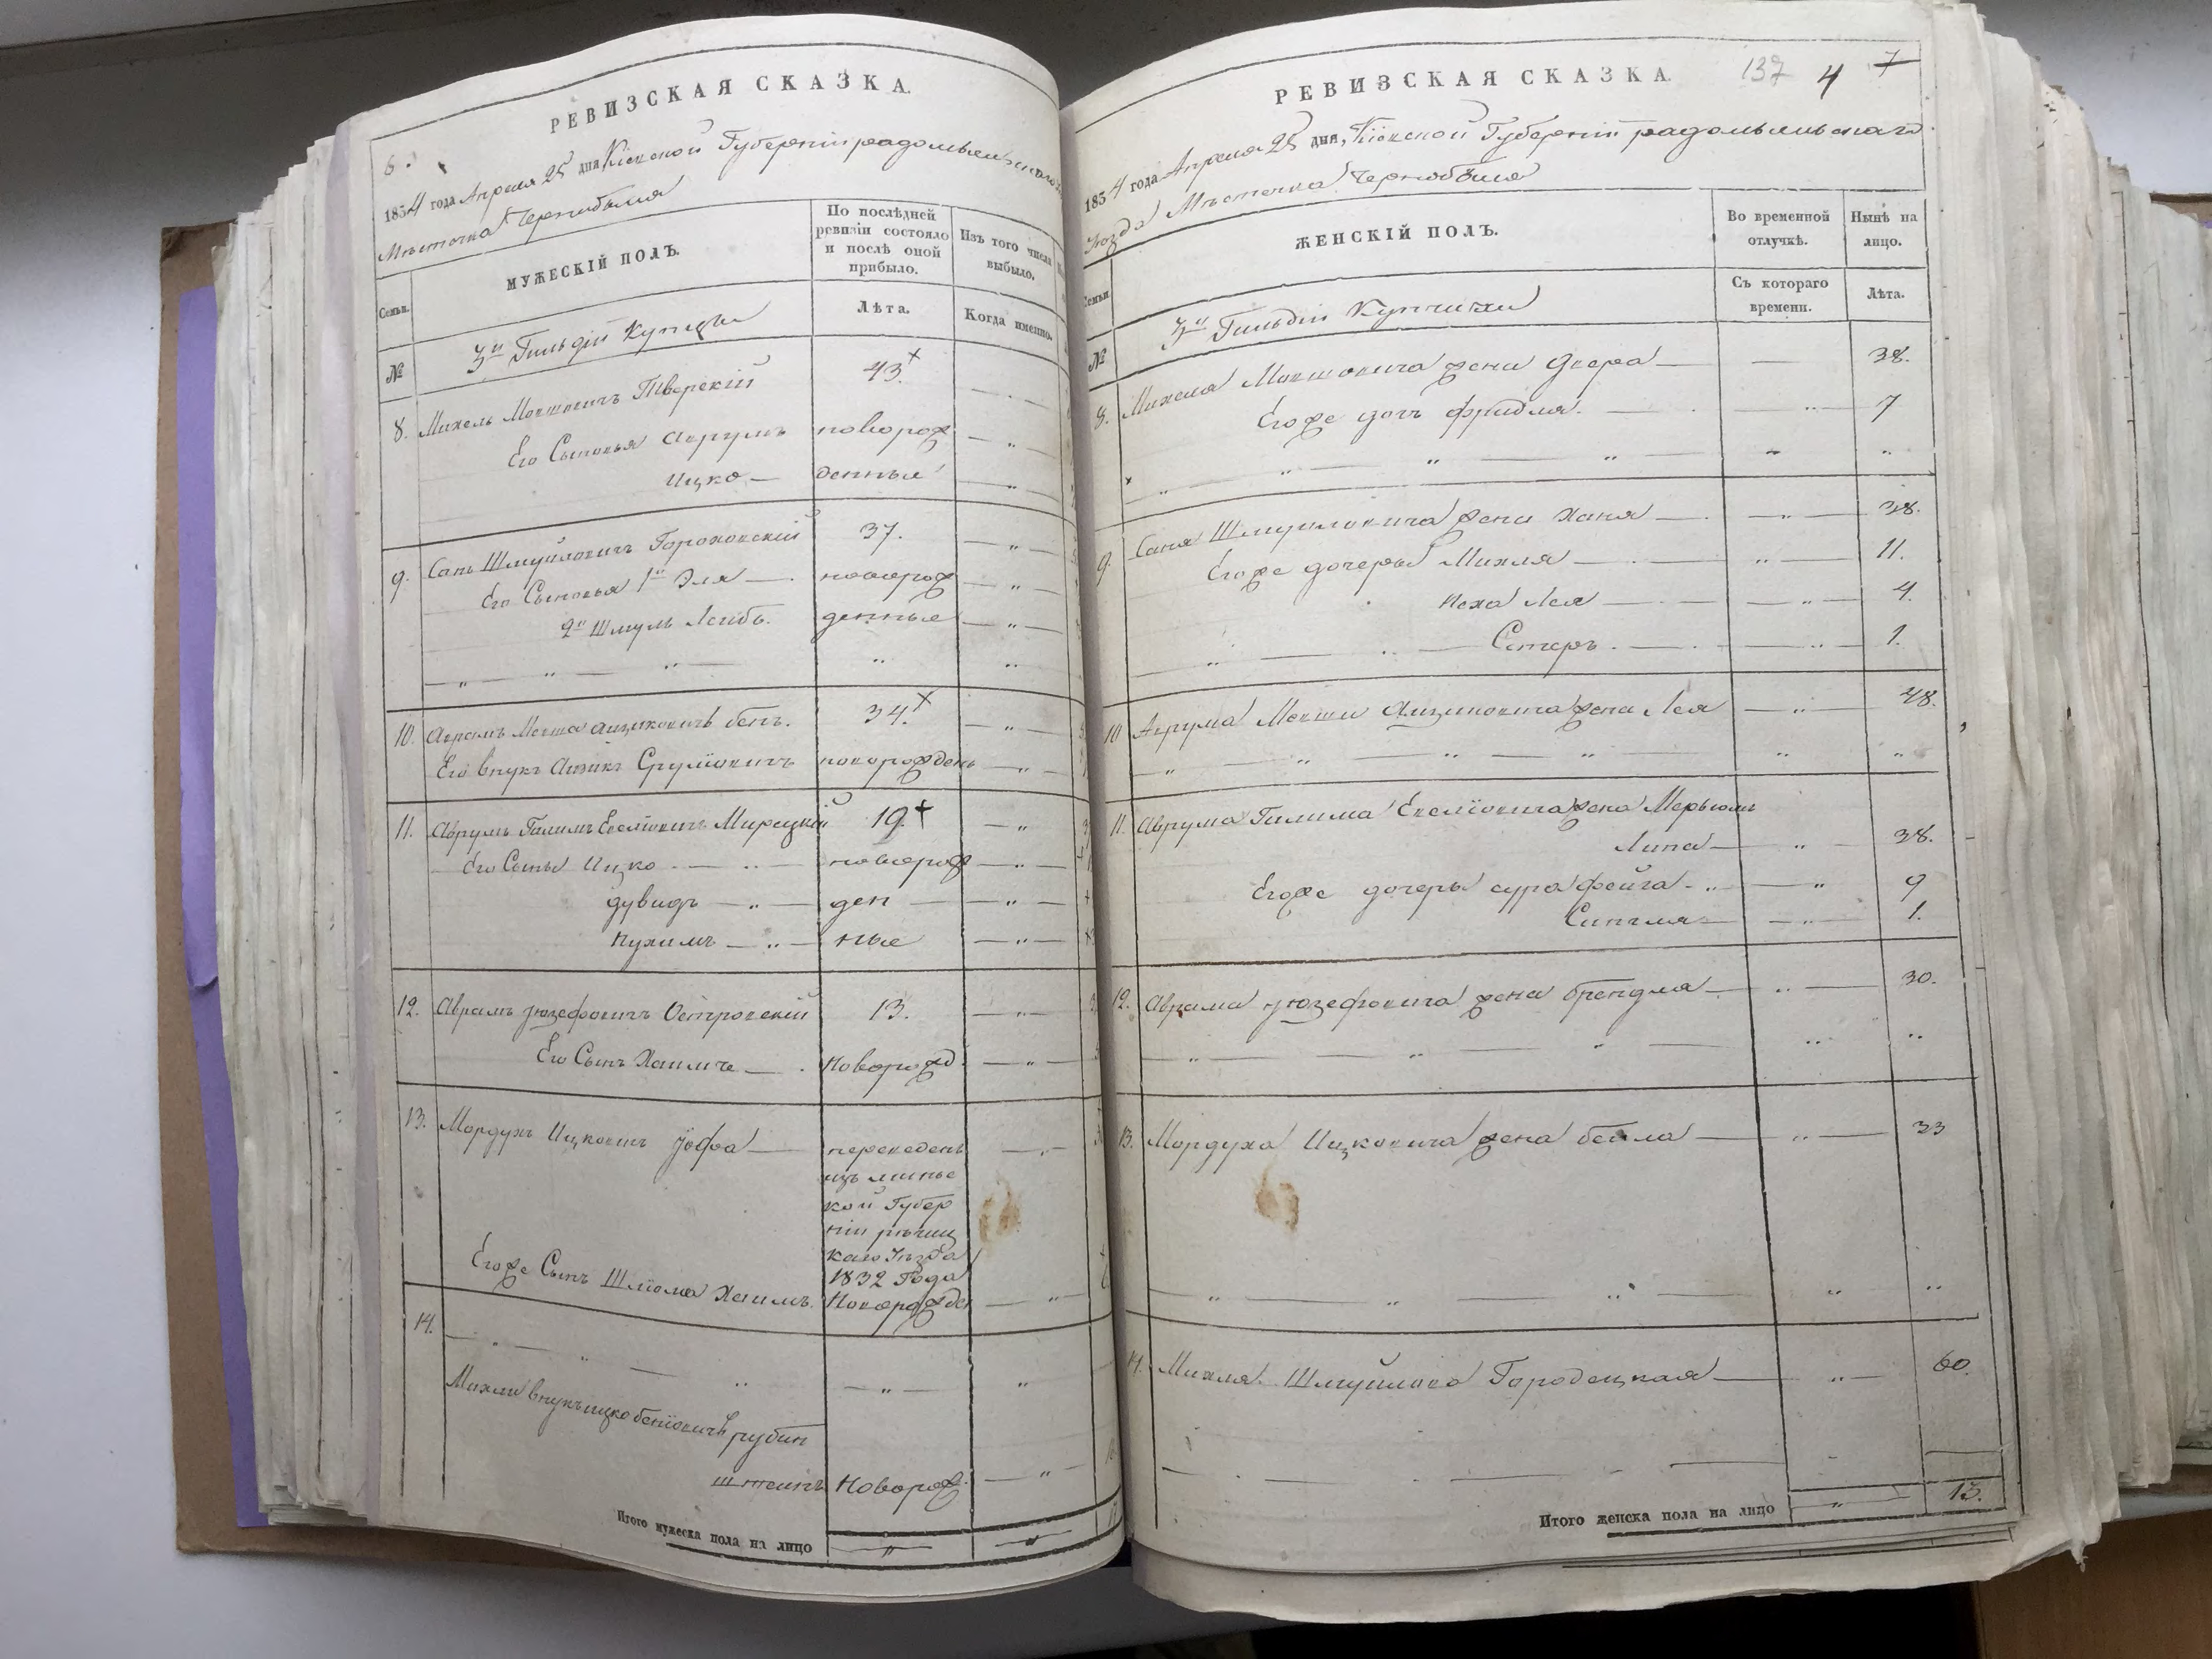 РЕВИЗСКАЯ СКАЗКА.
6.
1854 года Апреля 25 дня Кіевской Губерніи радомысльскаго
Мѣстечка Чернобыля
Семьи.
МУЖЕСКІЙ ПОЛЪ.
По послѣдней ревизіи состояло и послѣ оной прибыло.
Изъ того числа выбыло.
№
3й Гильдіи Купцы
Лѣта.
Когда именно.
8. Михель Мовшовичъ Тверскій 43.
Его Сыновья Аврумъ новорож
Ицко — денные
9. Сань Шмуйловичъ Гороховскій 37.
Его Сыновья 1й Эля — новорож
2й Шмуль Лейбъ. денные
10. Аврамъ Мовша Айзиковичъ бенъ. 34.
Его внукъ Айзикъ Сруліовичъ новорожденъ
11. Аврумъ Гилимъ Евсѣіовичъ Мирецкій 19.
Его Сыны Ицко новорож
дувидъ — ден
Нухимъ — ные
12. Аврамъ Юзефовичъ Островскій 13.
Его Сынъ Хаимъ — Новорожд.
13. Мордухъ Ицковичъ Іоффа — переведенъ
изъ минъс
кой Губер
ніи рѣчиц
каго Уѣзда
1832 Года
Его же Сынъ Шліома Хаимъ. Новорожден
14.
Михли внукъ ицко беніовичъ рубин
штеинъ Новорож.
Итого мужеска пола на лицо
РЕВИЗСКАЯ СКАЗКА. 137 4 7
1854 года Апреля 25 дня, Кіевской Губерніи радомысльскаго
Уѣзда Мѣстечка Чернобыля
Семьи.
ЖЕНСКІЙ ПОЛЪ.
Во временной отлучкѣ.
Нынѣ на лицо.
№
3й Гильдіи Купчихи
Съ котораго времени.
Лѣта.
8. Михеля Мовшовича жена Двера — 38.
Его же дочь фридля. 7
9. Саня Шмуйловича жена Ханя — 38.
Его же дочеры Михля — 11.
Неха Лея — 4.
Стеръ. — 1.
10 Аврума Мовши Айзиковича жена Лея — 48.
11. Аврума Гилима Евсѣіовича жена Мерьямъ
Липа — 38.
Его же дочеры сура фейга — 9
Сипля — 1.
12. Аврама Юзефовича жена брендля — 30.
13. Мордуха Ицковича жена бейла — 33
14. Михля Шмуйлова Городецкая — 60.
Итого женска пола на лицо 13.